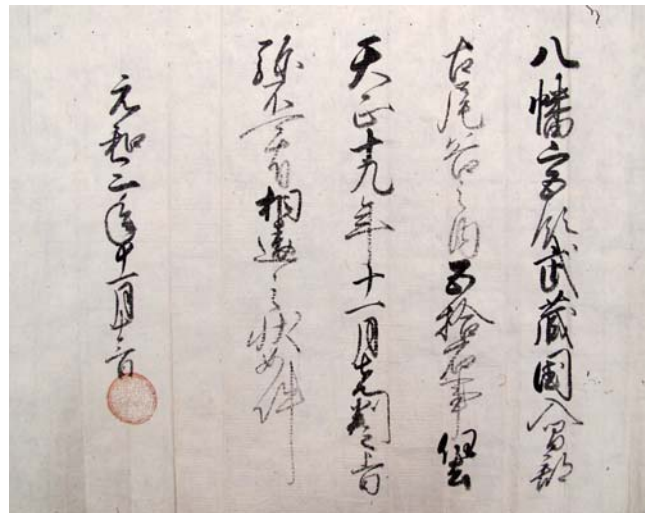 八幡宮領武蔵国入間郡
古尾谷之内五拾石事任去
天正十九年十一月先判之旨
弥不可有相違之状如件
元和二年十一月